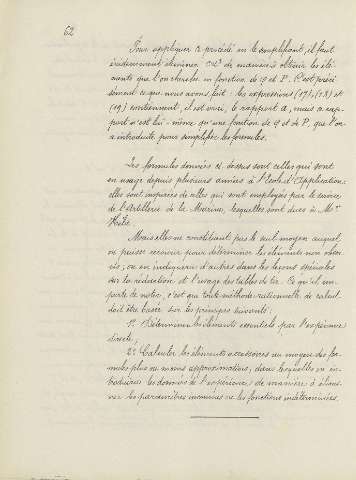 62
Pour appliquer ce procédé en le simplifiant, il faut
évidemment éliminer de manière à obtenir les élé-
ments que l'on cherche en fonction de φ et P. C'est préci-
sément ce que nous avons fait : les expressions (17), (18) et
(19) contiennent, il est vrai, le rapport a, mais ce rap-
port n'est lui-même qu'une fonction de φ et de P que l'on
a introduite pour simplifier les formules.
Les formules données ci-dessus sont celles qui sont
en usage depuis plusieurs années à l'École d'Application;
elles sont inspirées de celles qui sont employées par le service
de l'Artillerie de la Marine, lesquelles sont dues à Mr
Hélie.
Mais elles ne constituent pas le seul moyen auquel
on puisse recourir pour déterminer les éléments non obser-
vés; on en indiquera d'autres dans les leçons spéciales
sur la rédaction et l'usage des tables de tir. Ce qu'il im-
porte de noter, c'est que toute méthode rationnelle de calcul
doit être basée sur les principes suivants :
1º. Déterminer les éléments essentiels par l'expérience
directe;
2º. Calculer les éléments accessoires au moyen des for-
mules plus ou moins approximatives, dans lesquelles on in-
troduira les données de l'expérience de manière à élimi-
ner les paramètres inconnus ou les fonctions indéterminées.